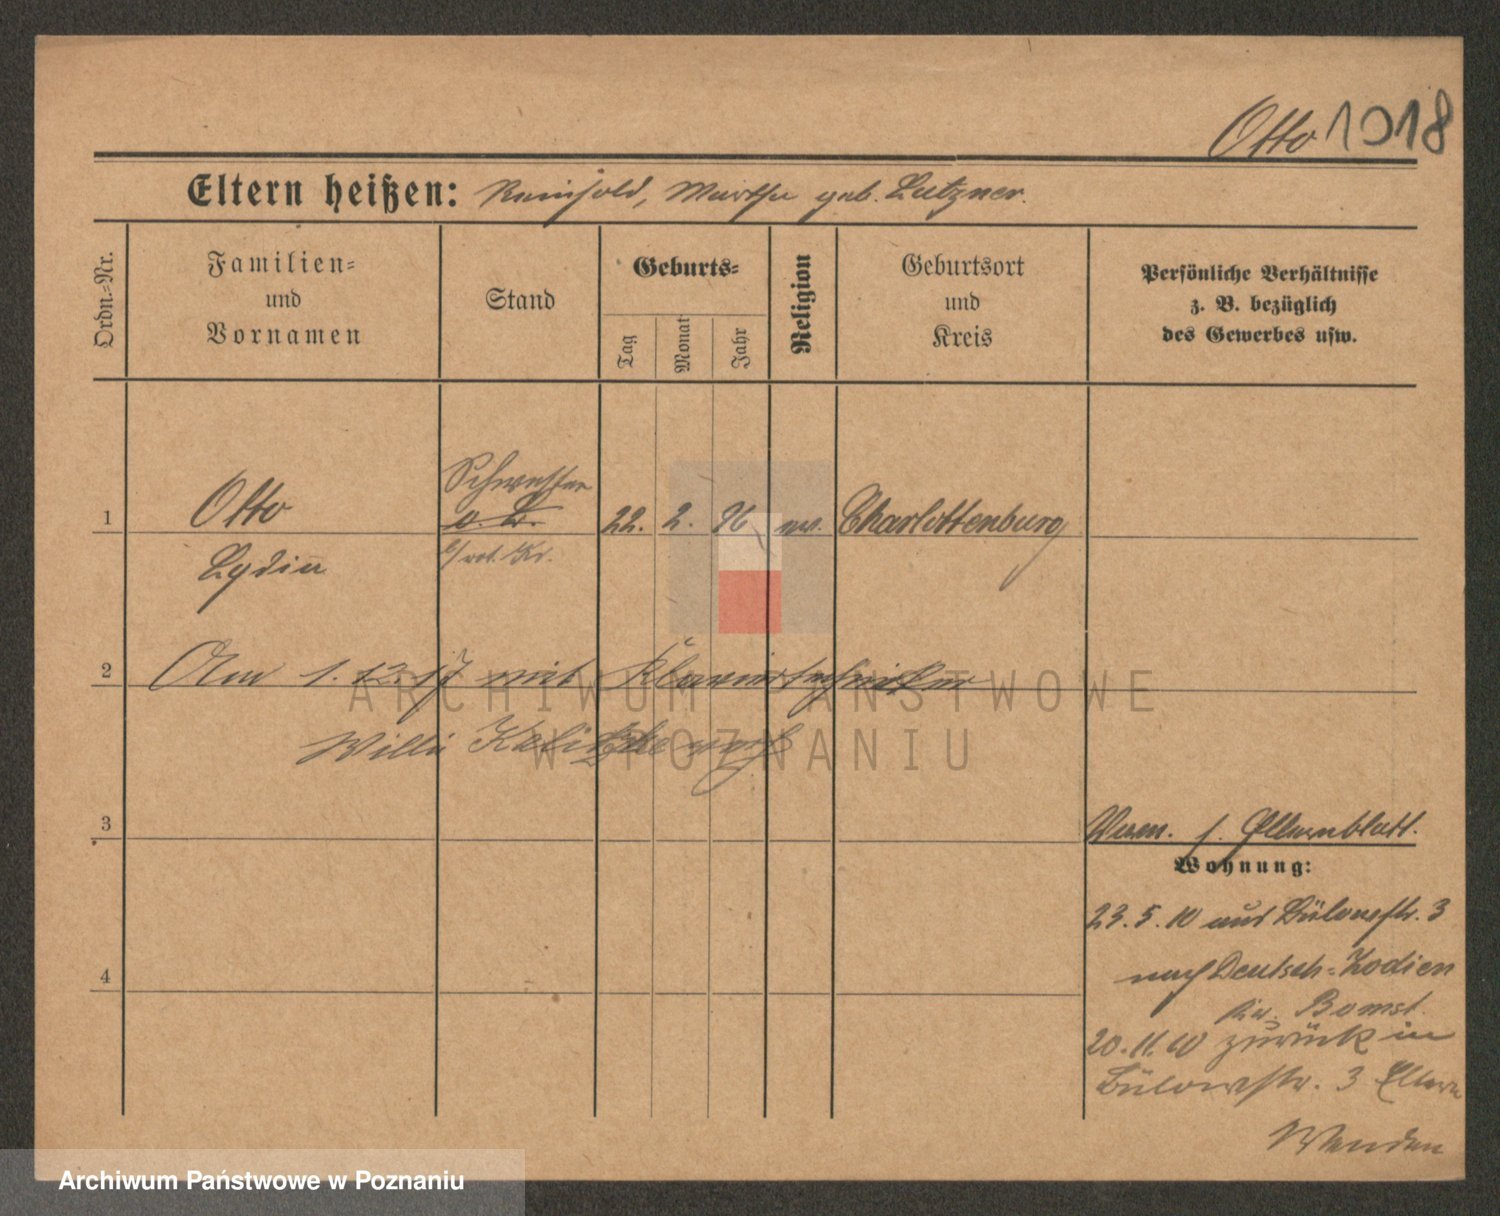 Otto 1018
Eltern heißen: Reinhold, Martha geb. Lutzner.
Ordn.-Nr.
Familien-
und
Vornamen
Stand
Geburts-
Tag
Monat
Jahr
Religion
Geburtsort
und
Kreis
Persönliche Verhältnisse
z. B. bezüglich
des Gewerbes usw.
Schwester
1 Otto o. B. 22. 2. 96 ev. Charlottenburg
Lydia
2 Am 1. 12. 17 mit Klaviertechniker
Willi
3
Verm. s. Elternblatt.
Wohnung:
23.5.10 aus Bülowstr. 3
4
nach Deutsch-Kodien
Kr. Bomst.
20.11.10 zurück in
Bülowstr. 3 Eltern
Wenden
ARCHIWUM PAŃSTWOWE
W POZNANIU
Archiwum Państwowe w Poznaniu